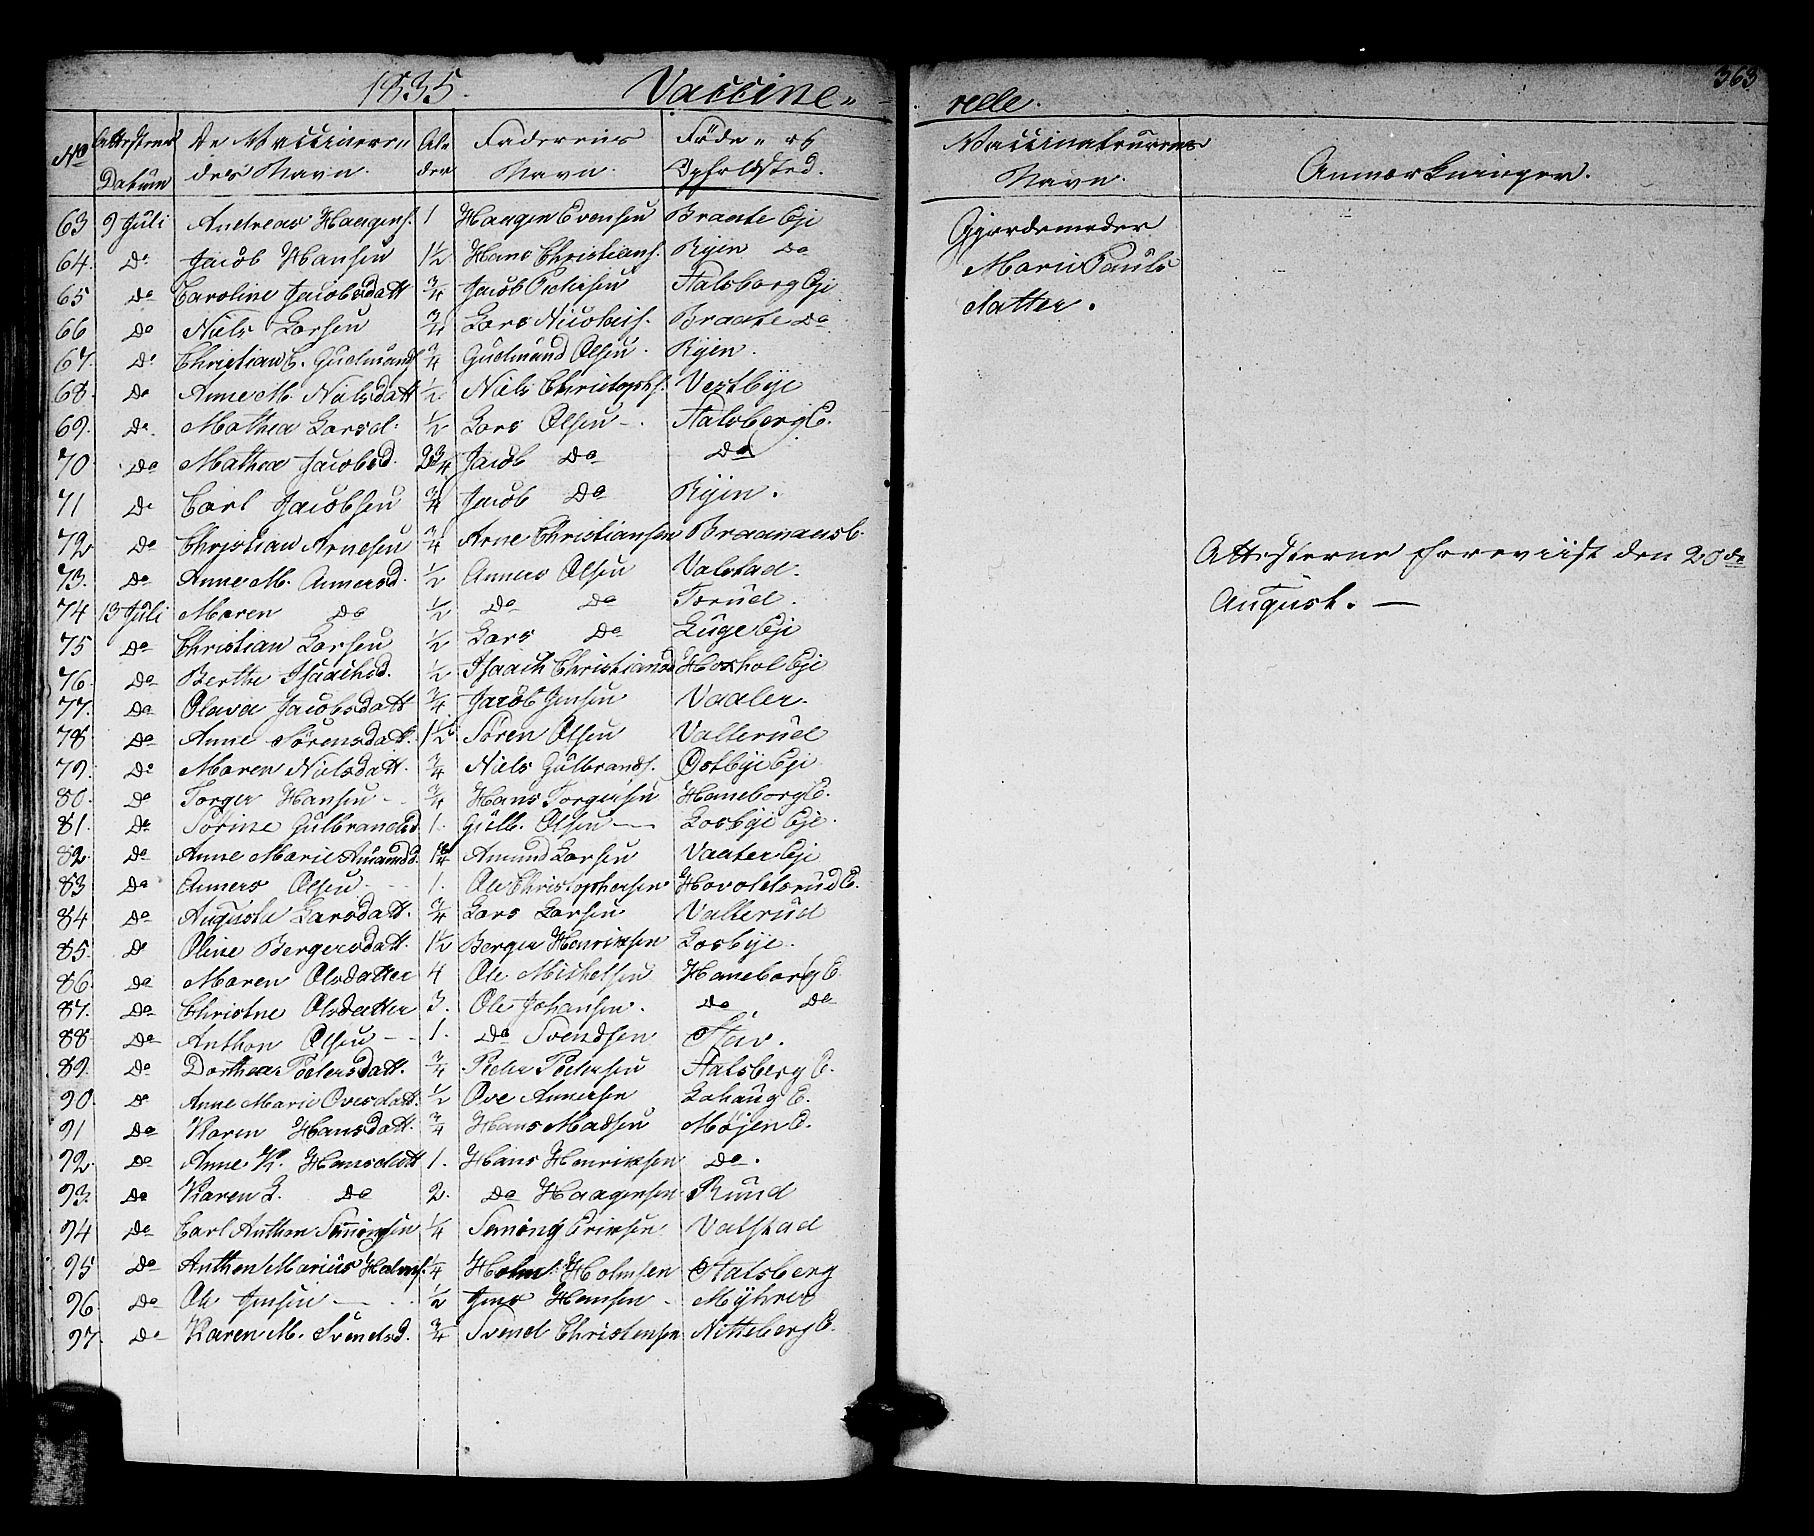 1835. Vaccine-
No Attestens Datum De Vaccineredes Navn. Alder Faderens Navn. Føde- og Opholdsted.
63 9 Juli Andreas Haagens. 1 Haagen Evensen Braate Eje
64. Do Jacob Hansen 1½ Hans Christians. Ryen Do
65 Do Caroline Jacobsdatt ¾ Jacob Pedersen Stalsberg Eje
66 Do Niels Larsen ¾ Lars Nicolais. Braate Do
67. Do Christian E. Gudmunds ¾ Gudmund Olsen. Ryen.
68. Do Anne M. Nielsdatt ½ Niels Christophs. Vestbye
69. Do Mathea Larsd. ½ Lars Olsen Stalsberg E.
70 Do Mathea Jacobsd. 2¾ Jacob Do Do
71 Do Carl Jacobsen ¾ Jacob Do Ryen.
72 Do Christian Arnesen ¾ Arne Christiansen Braanaasb.
73. Do Anne M. Annersd. ½ Anners Olsen Valstad.
74 13 Juli Maren Do ½ Do Do Torud.
75 Do Christian Larsen ½ Lars Do Luge Eje
76. Do Berthe Isaachsd. ½ Isaach Christians Hoxhol Eje
77. Do Olava Jacobsdatt ¾ Jacob Jensen Vaaler.
78 Do Anne Sørensdatt. 1½ Søren Olsen Valterud
79. Do Maren Nielsdatt. ¾ Niels Gulbrands. Østbye Eje
80. Do Torger Hansen ¾ Hans Torgersen Haneborg E.
81. Do Sørine Gulbrandsd 1. Gulb. Olsen Losbye Eje.
82 Do Anne Marie Amundsd. 1¾ Amund Larsen Vaater Eje
83 Do Anners Olsen 1. Ole Christophersen Hovoldsrud E.
84 Do Auguste Larsdatt. ¾ Lars Larsen Valterud
85. Do Oline Bergersdatt. 1½ Berger Henriksen Losbye.
86. Do Maren Olsdatter 4 Ole Michelsen Haneborg E.
87. Do Christne Olsdatter 3. Ole Johansen. Do Do
88 Do Anthon Olsen 1. Do Svendsen Stav.
89. Do Dorthea Pedersdatt. ¾ Peder Pedersen Stalsberg E.
90 Do Anne Marie Ovesdatt. ½ Ove Annersen Lohaug E.
91 Do Karen Hansdatt. ¾ Hans Madsen Møjen E.
92. Do Anne K. Hansdatt 1. Hans Henriksen Do.
93. Do Karen L. Do 2. Do Haagensen Rund
94 Do Carl Anthon Simensen ¼ Eriksen Valstad
95 Do Anthon Marius Holms. ¼ Holm Holmsen Stalsberg
96 Do Ole Jensen ½ Jens Hansen Myhrer
97. Do Karen M. Svendsd. ¾ Svend Christensen Nitteberg E.
363
relle.
Vaccinateurens Navn. Anmærkninger.
Gjordemoder
Marie Pauls
datter.
Attesterne foreviist den 20de
August.